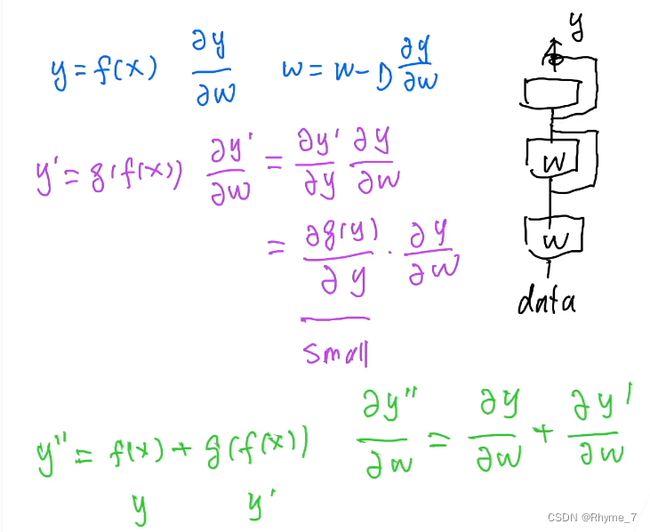 y = f(x) ∂y/∂w w = w - D ∂y/∂w
y' = g(f(x)) ∂y'/∂w = ∂y'/∂y ∂y/∂w
= ∂g(y)/∂y · ∂y/∂w
small
y'' = f(x) + g(f(x)) ∂y''/∂w = ∂y/∂w + ∂y'/∂w
y y'
y
w
w
data
CSDN @Rhyme_7